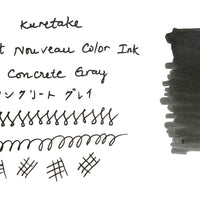 Kuretake
t Nouveau Color Ink
Concrete Gray
ンクリート グレイ